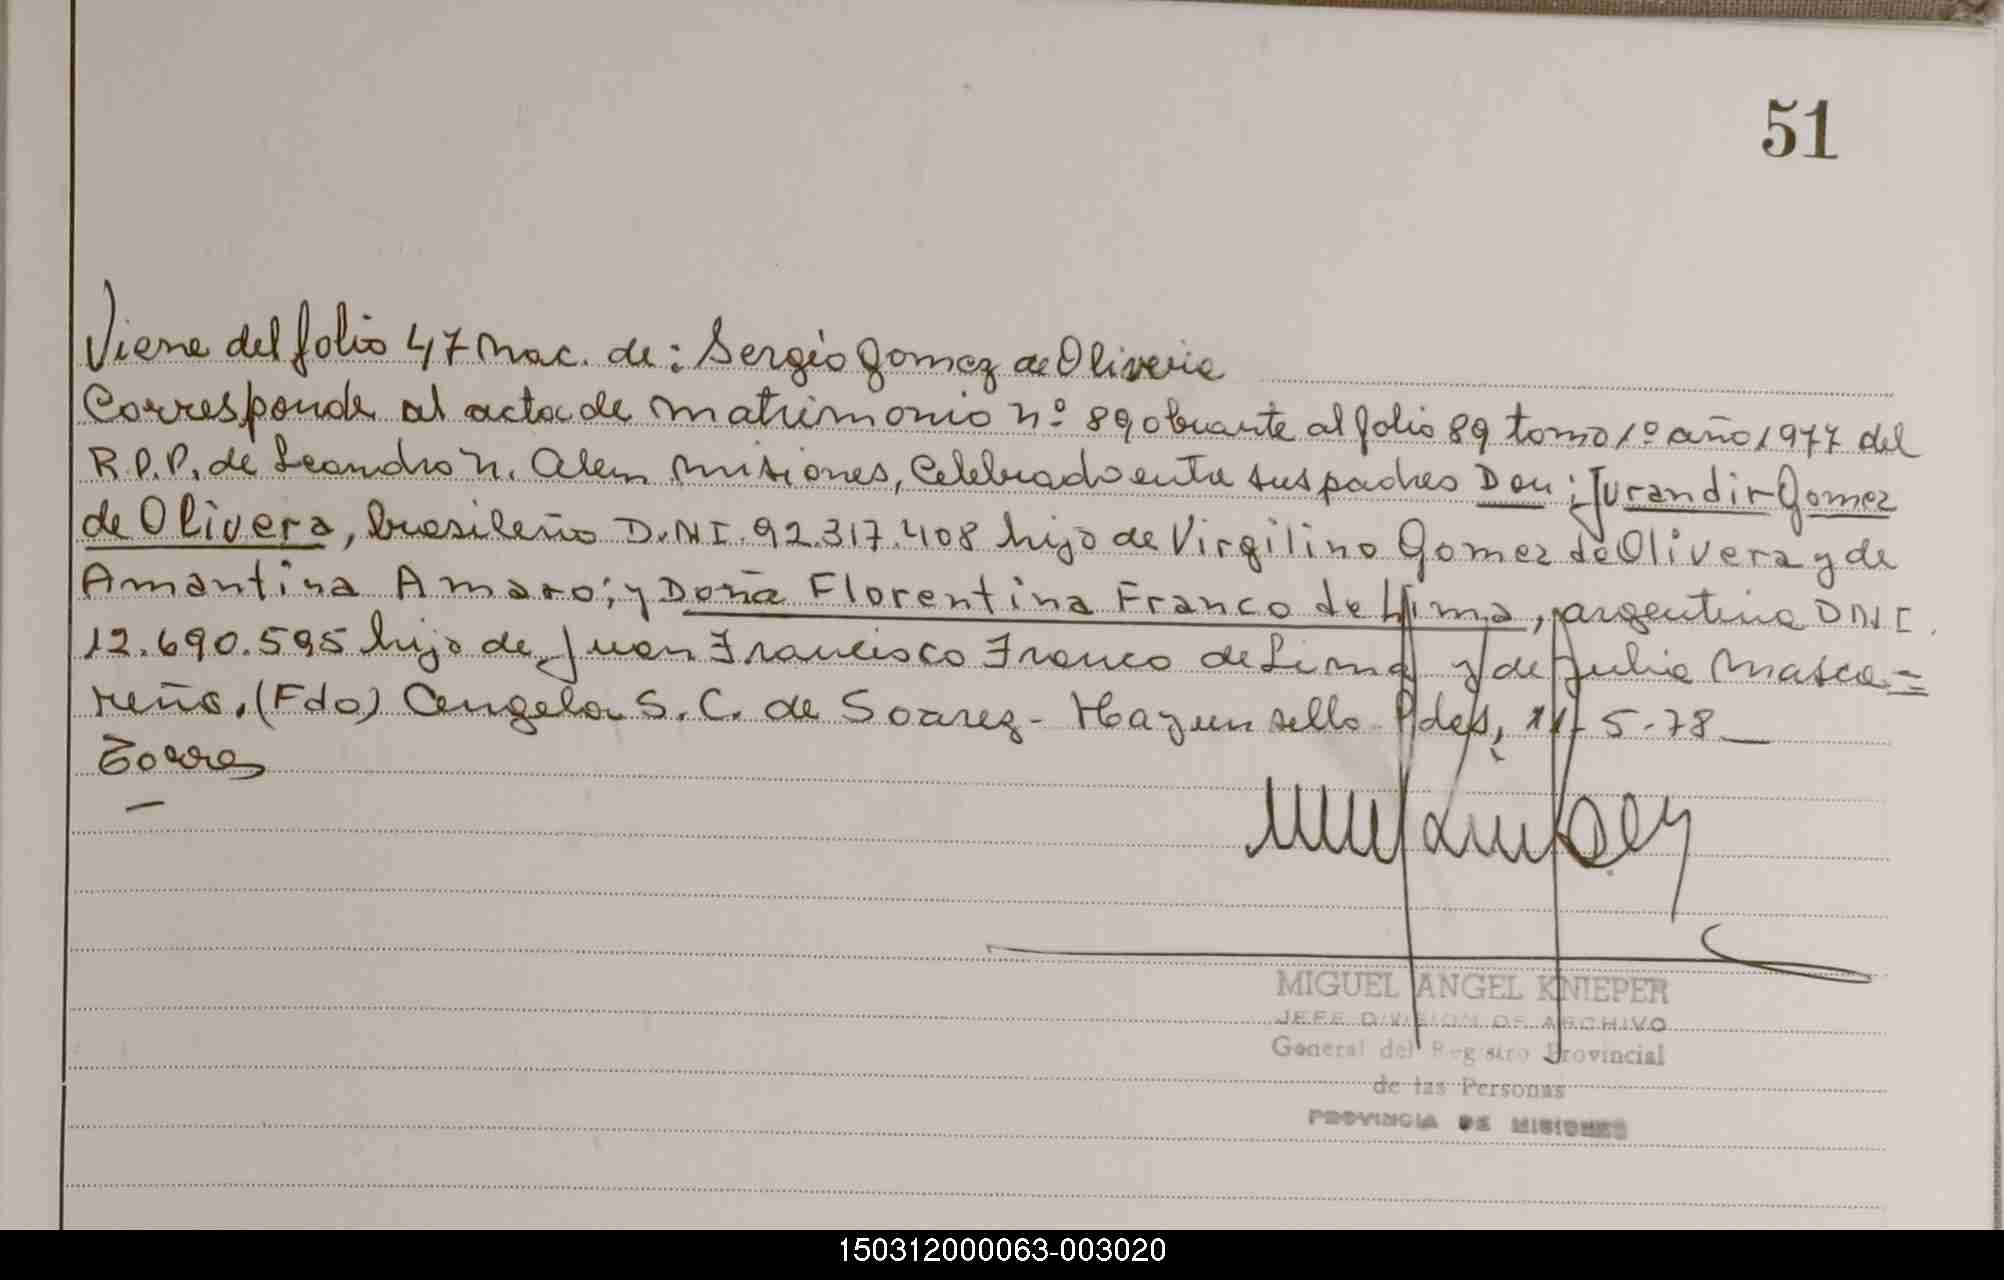 51
Viene del folio 47 Nac. de: Sergio Gomez de Oliveira
Corresponde al acta de matrimonio nº 89 obrante al folio 89 tomo 1º año 1977 del
R.P.P. de Leandro N. Alem Misiones, Celebrado entre sus padres Don: Jurandir Gomez
de Olivera, brasileño D.N.I. 92.317.408 hijo de Virgilino Gomez de Olivera y de
Amantina Amaro; y Doña Florentina Franco de Lima, argentina D.N.I.
12.690.595 hija de Juan Francisco Franco de Lima y de Julia Masca=
reño. (Fdo) Angela S. C. de Soarez - Hay un sello - Pdas, 11-5-78
Torres
MIGUEL ANGEL KNIEPER
JEFE DIVISION DE ARCHIVO
General del Registro Provincial
de las Personas
PROVINCIA DE MISIONES
150312000063-003020